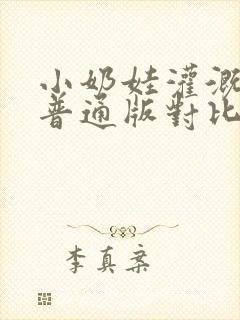 小奶娃灌溉
普通版對比
李真案